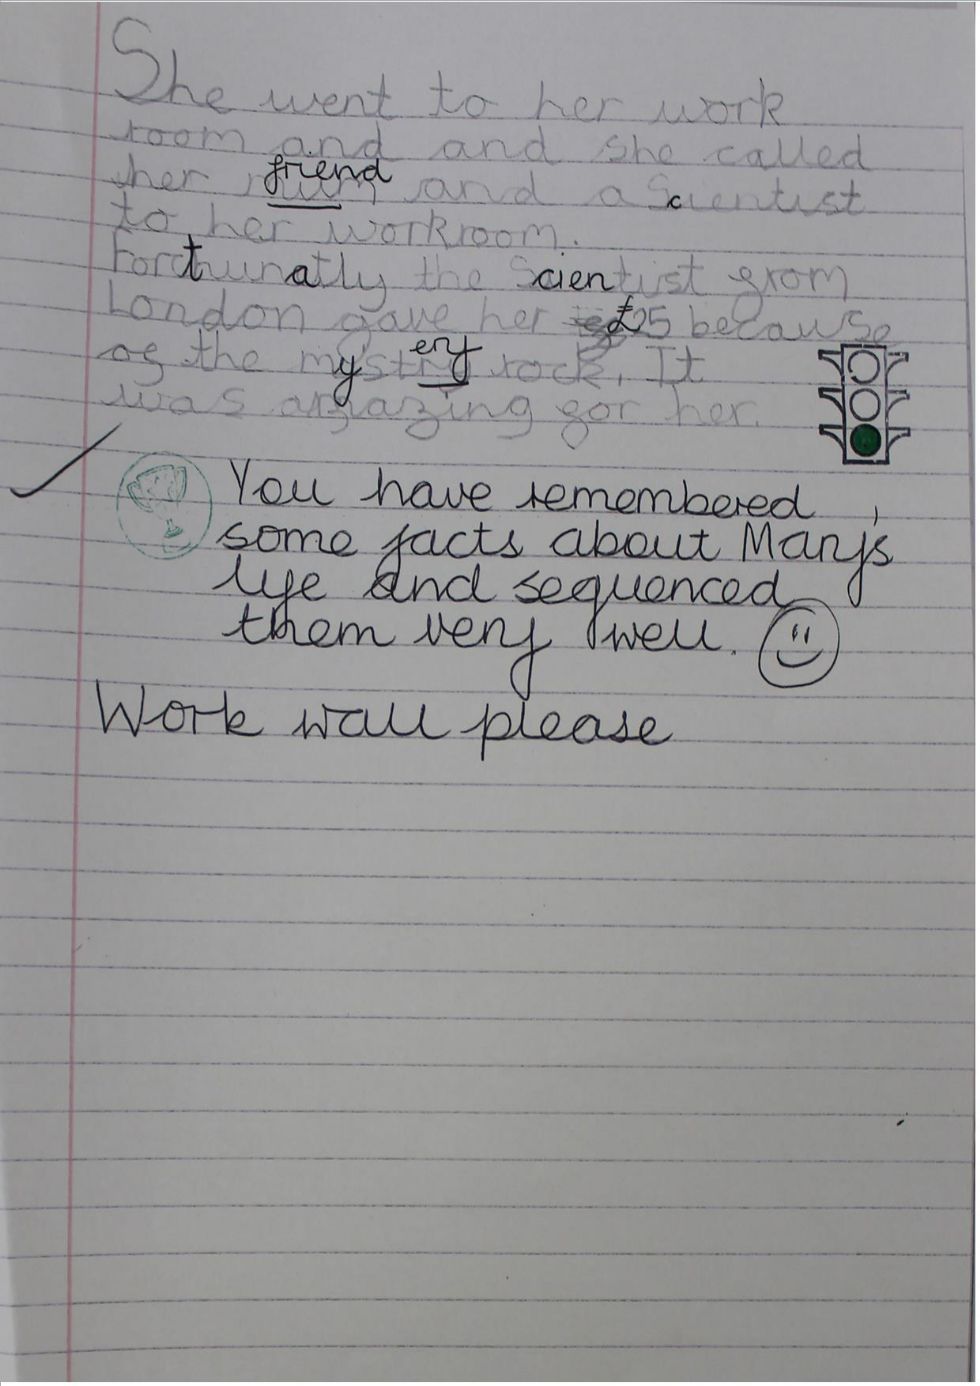 She went to her work
room and and she called
her friend and a Scientist
to her workroom.
Fortunatly the Scientist from
London gave her £25 because
of the mystery rock. It
was amazing for her.
You have remembered
some facts about Mary's
life and sequenced
them very well.
Work wall please